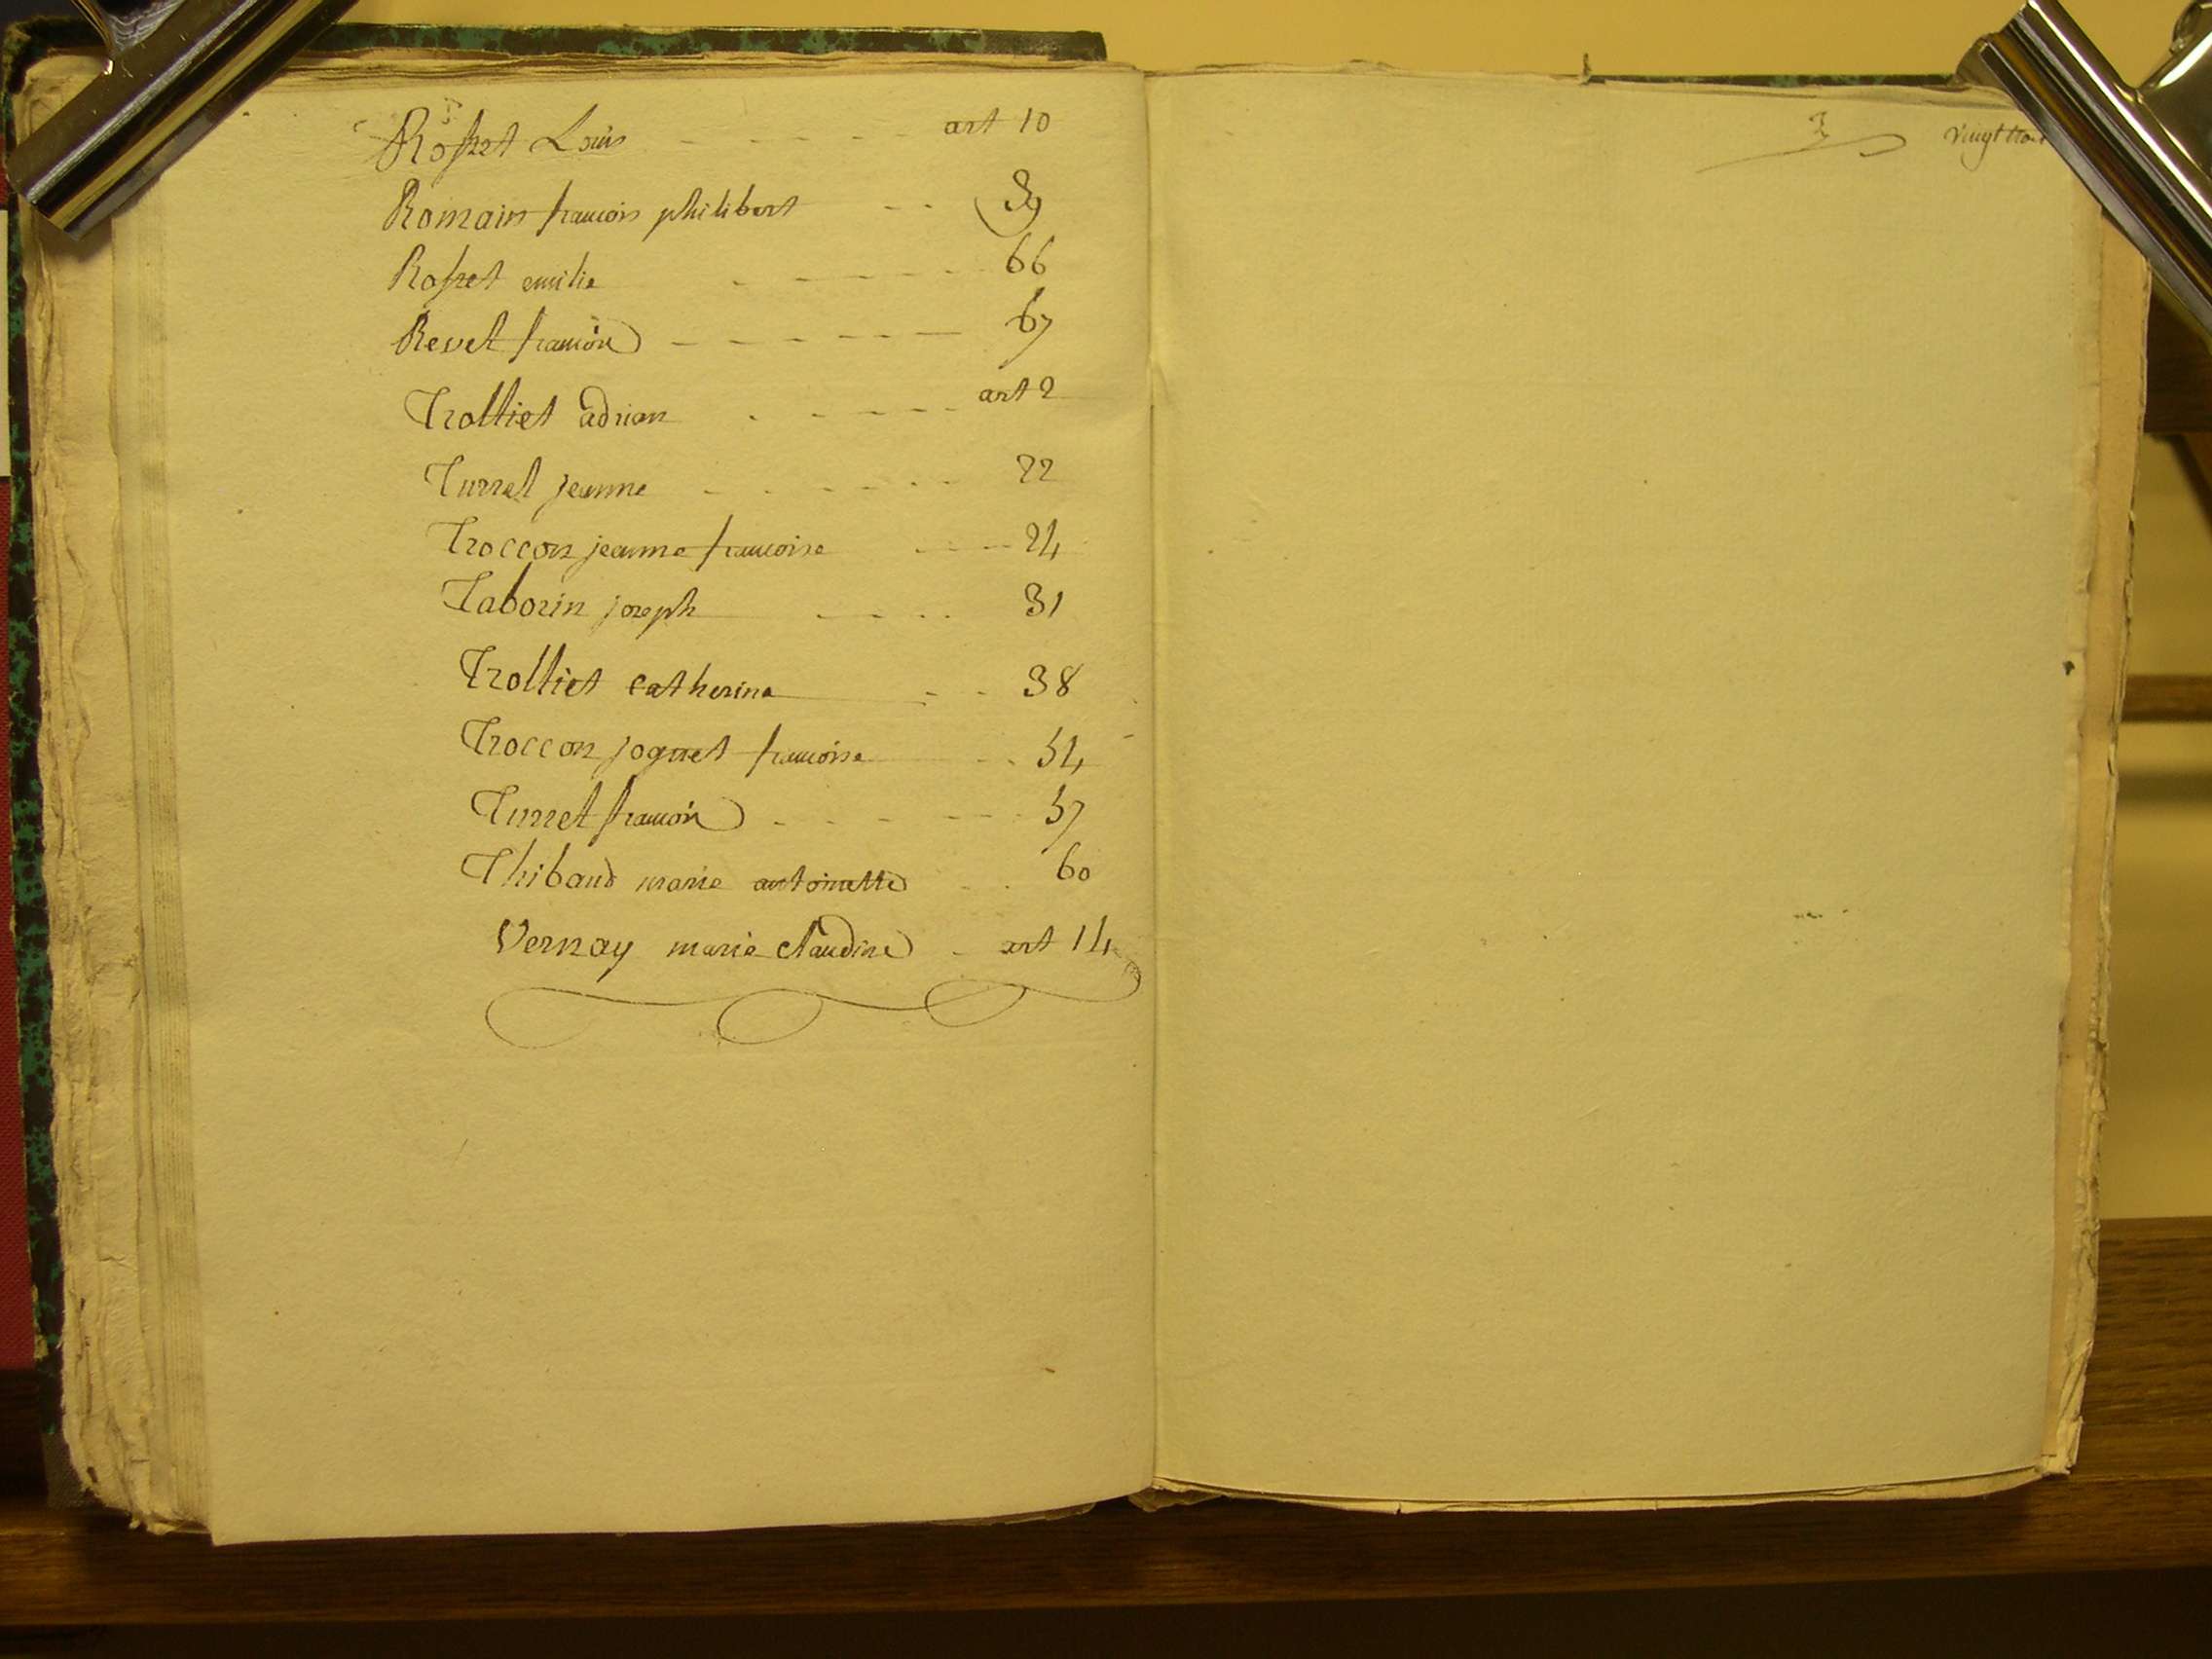 Rosset Louis - - - - - art 10
Romain francois philibert - - 39
Rosset emilie - - - - - 66
Revet francois - - - - - 67
Trolliet adrian - - - - - art 2
Turrel jeanne - - - - - 22
Troccon jeanne francoise - - - 24
Taborin joseph - - - - 31
Trolliet catherine - - 38
Troccon joguet francoise - - 54
Turret francois - - - - - 57
Thibaud marie antoinette - - 60
Vernay marie claudine - art 14
vingt trois